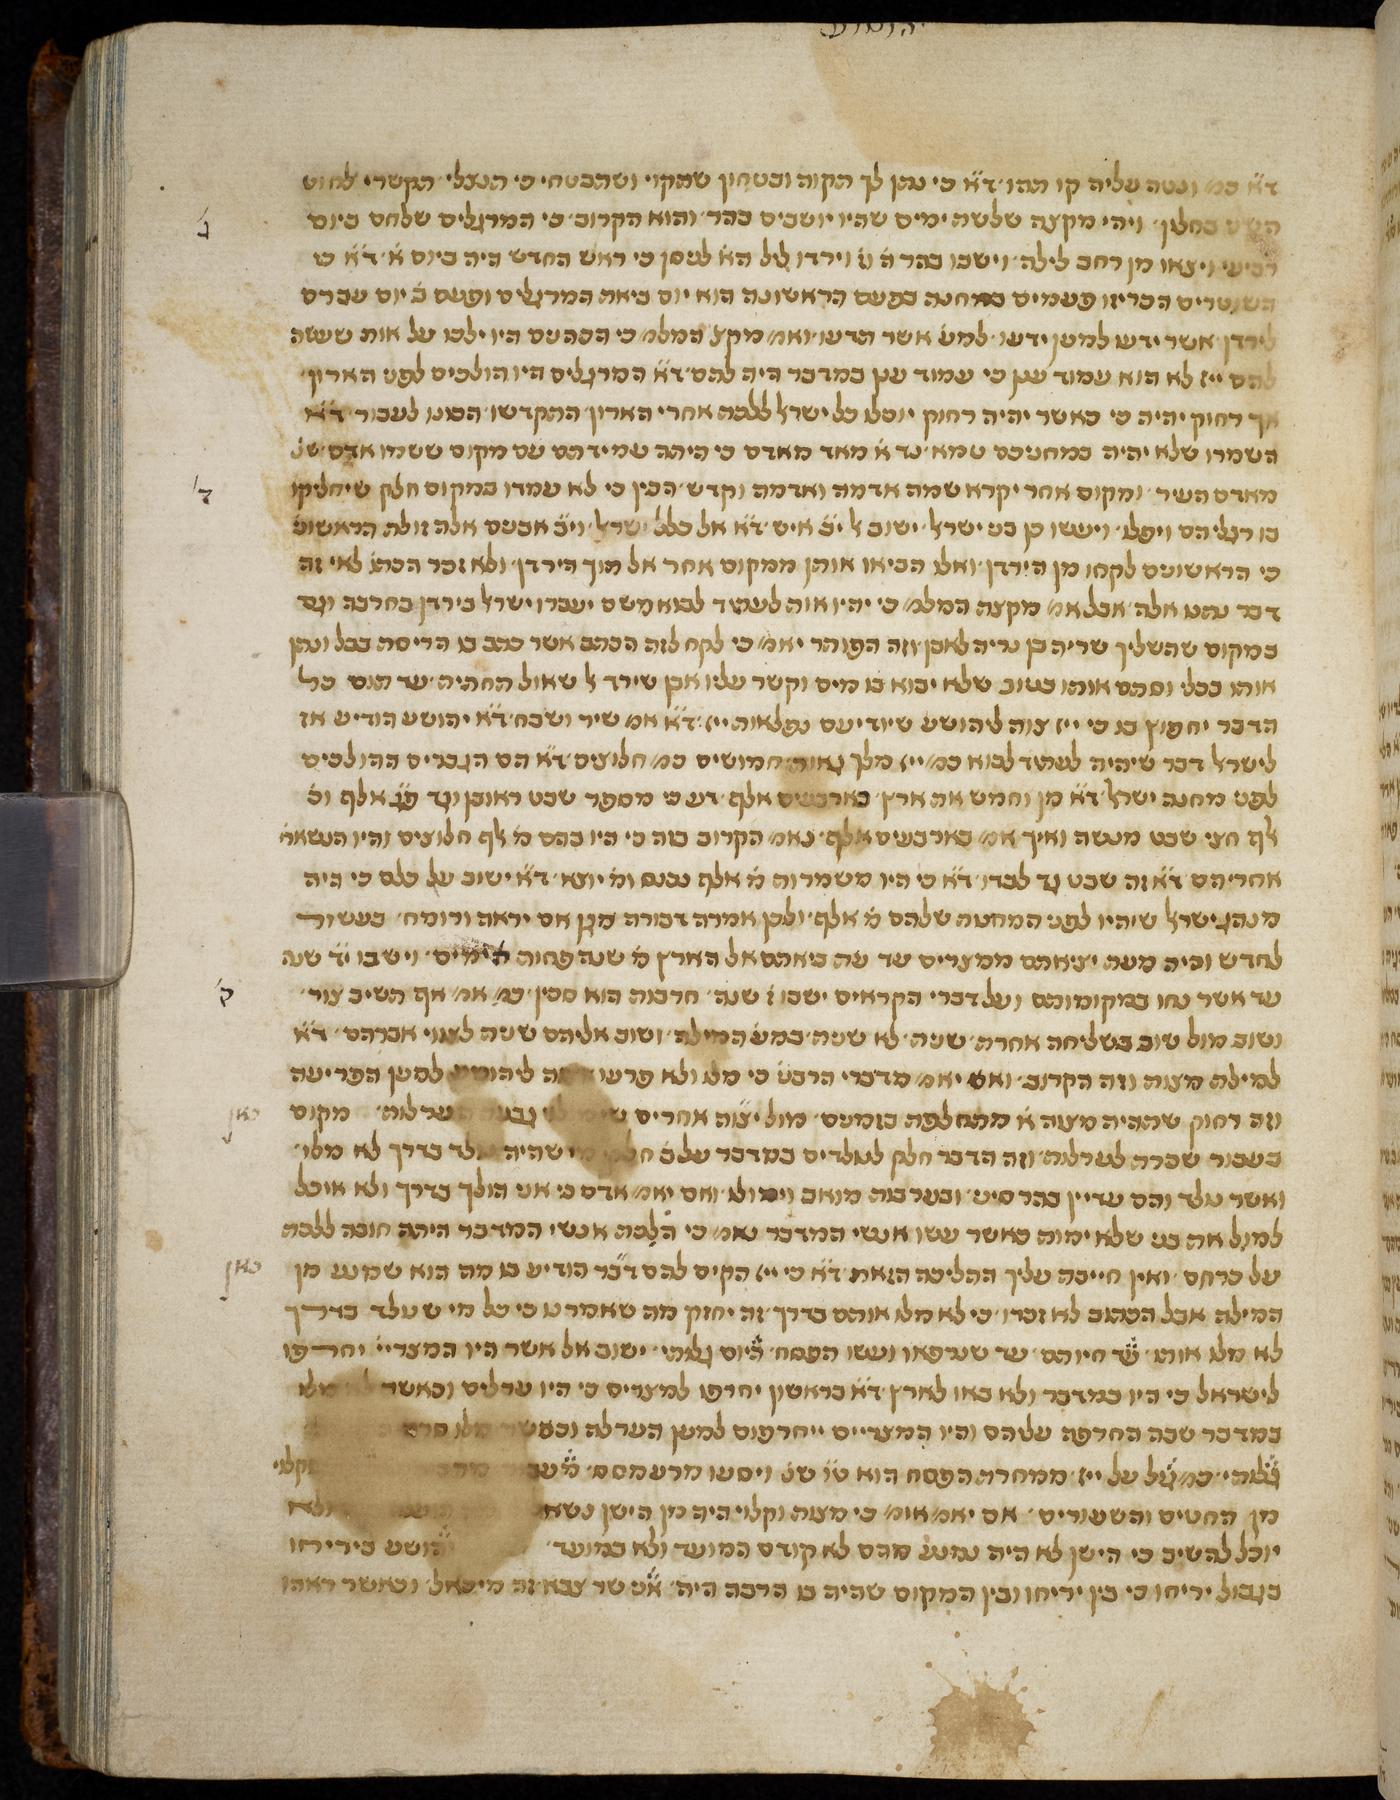 יהושע
ד״א כמ׳ ונטה עליה קו תהו ד״א כי נתן לך תקוה ובטחון שתקוי ושתבטחי כי תנצלי תקשרי לחוט
השני בחלון׳ ויהי מקצה שלשת ימים שהיו יושבים בהר והוא הקרוב׳ כי המרגלים שלחם ביום
רביעי ויצאו מן רחב לילה׳ וישבו בהר ה׳ ו׳ וירדו ליל הא׳ לניסן כי ראש החדש היה ביום א׳ ד״א כי
השוטרים הכריזו פעמים במחנה בפעם הראשונה הוא יום ביאת המרגלים ופעם ב׳ יום עברם
לירדן אשר ידעו למען ידעו׳ למען אשר תדעו׳ ואמ׳ מקצ׳ המלמ׳ כי הכהנים היו ילכו על אות שעשה
להם ייי׳ לא הוא עמוד ענן כי עמוד ענן במדבר היה להם׳ ד״א המרגלים היו הולכים לפני הארון׳
אך רחוק יהיה כי כאשר יהיה רחוק יוכלו כל ישרא׳ ללכת אחרי הארון׳ התקדשו׳ הכינו לעבור׳ ד״א
השמרו שלא יהיה במחניכם טמא׳ נד א׳ מאד מאדם כי היתה עמידתם עם מקום ששמו אדם׳ שנ׳
מאדם העיר׳ ומקום אחר יקרא שמה אדמה ואדמה וקדש׳ הכין כי לא עמדו במקום חלק שיחליקו
בו רגליהם ויפלו׳ ויעשו כן בני ישרא׳ ישוב ל׳ י״ב איש׳ ד״א אל כלל ישרא׳ וי״ב אבנים אלה זולת הראשונים
כי הראשונים לקחו מן הירדן׳ ואלו הביאו אותן ממקום אחר אל תוך הירדן׳ ולא זכר הכתו׳ לאי זה
דבר נתנו אלה׳ אבל אמ׳ מקצת המלמ׳ כי יהיו אות לעתיד לבוא משם יעברו ישרא׳ בירדן בחרבה וגם
במקום שהשליך שריה בן נריה לאבן׳ וזה הפותר יאמ׳ כי לקח לזה הכתב אשר כתב בו הריסת בבל ונתן
אותו בכלי וסתם אותו בטוב שלא יבוא בו מים וקשר עליו אבן שירד ל׳ שאול תחתיה׳ עד תום כל
הדבר יחפוץ בו כי ייי׳ צוה ליהושע שיודיעם נפלאות ייי׳ ד״א אמ׳ שיר ושבח׳ ד״א יהושע הודיע אז
לישרא׳ דבר שיהיה לעתיד לבוא כמ׳ ייי׳ מלך גאות׳ חמושים כמ׳ חלוצים׳ ד״א הם הגברים ההולכים
לפני מחנה ישרא׳ ד״א מן וחמש את ארץ׳ כארבעים אלף׳ דע כי מספר שבט ראובן וגד פ״ג אלף וכ׳
לף חצי שבט מנשה ואיך אמ׳ כארבעים אלף׳ נאמ׳ הקרוב בזה כי היו בהם מ׳ לף חלוצים והיו הנשארי׳
אחריהם׳ ד״א זה שבט גד לבדו׳ ד״א כי היו משמרות מ׳ אלף נכנס ומ׳ יוצא׳ ד״א ישוב על כלם כי היה
מנהג ישרא׳ שיהיו לפני המחנה שלהם מ׳ אלף׳ ולכן אמרה דבורה מגן אם יראה ורומח׳ בעשור
לחדש והיה מעת יציאתם ממצרים עד עת ביאתם אל הארץ מ׳ שנה פחות ה׳ ימים׳ וישבו י״ד שנה
עד אשר נחו במקומותם ועל דברי הקראים ישבו ז׳ שנה׳ חרבות הוא סכין׳ כמ׳ אמ׳ אף תשיב צור׳
ושוב מול שוב בשליחה אחרת׳ שנית׳ לא שנית׳ במע׳ המילה׳ ושוב אליהם שנית לצווי אברהם׳ ד״א
למילת מצות וזה הקרוב׳ ואם יאמ׳ מדברי הרבנ׳ כי מלו ולא פרעו ליהושע למען הפריעה
וזה רחוק שתהיה מצוה א׳ מתחלפת בזמנים׳ מול יצוה אחרים הערלות׳ מקום
בעבור שכרת לערלות׳ וזה הדבר חלק לנולדים במדבר על ב׳ מי שהיה נולד בדרך לא מלו׳
ואשר נולד והם עדיין בהר סיני׳ ובערבות מואב וימולו׳ ואם יאמ׳ אדם כי אני הולך בדרך ולא אוכל
למול את בני שלא ימות כאשר עשו אנשי המדבר נאמ׳ כי הלכת אנשי המדבר היתה חובה ללכת
על כרחם׳ ואין חייבה עליך ההליכה הזאת׳ ד״א כי ייי׳ הקים להם דבר הודיע בו מה הוא שמנעו מן
המילה אבל הכתוב לא זכרו׳ כי לא מלו אותם בדרך׳ זה יחזק מה שאמרנו כי כל מי שנולד בדרך
לא מלו אותו׳ עד חיותם׳ עד שנרפאו ועשו הפסח׳ היום גלותי׳ ישוב אל אשר היו המצריי׳ יחרפו
לישראל כי היו במדבר ולא באו לארץ׳ ד״א בראשון יחרפו למצרים כי היו ערלים וכאשר
במדבר שבה החרפה עליהם והיו המצריים ייחרפום למען הערלה וכאשר מלו
גלותי׳ כמ׳ גול על ייי׳ ממחרת הפסח הוא ט״ו שנ׳ ויסעו מרעמסס׳ וקלוי
מן החטים והשעורים׳ אם יאמ׳ אומ׳ כי מצות וקלוי היה מן הישן ולא
יוכל להשיב כי הישן לא היה נמנע מהם לא קודם המועד ולא במועד׳ יהושע ביריחו
בגבול יריחו כי בין יריחו ובין המקום שהיה בו הרבה היה׳ אני שר צבא׳ זה מיכאל׳ וכאשר ראהו
ג׳
ד׳
ק׳
כאן
כאן